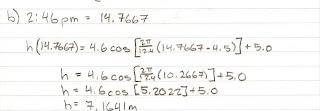 b) 2:46pm = 14.7667
h(14.7667) = 4.6 cos [2π/12.4 (14.7667 - 4.5)] + 5.0
h = 4.6 cos [2π/12.4 (10.2667)] + 5.0
h = 4.6 cos [5.2022] + 5.0
h = 7.1641m